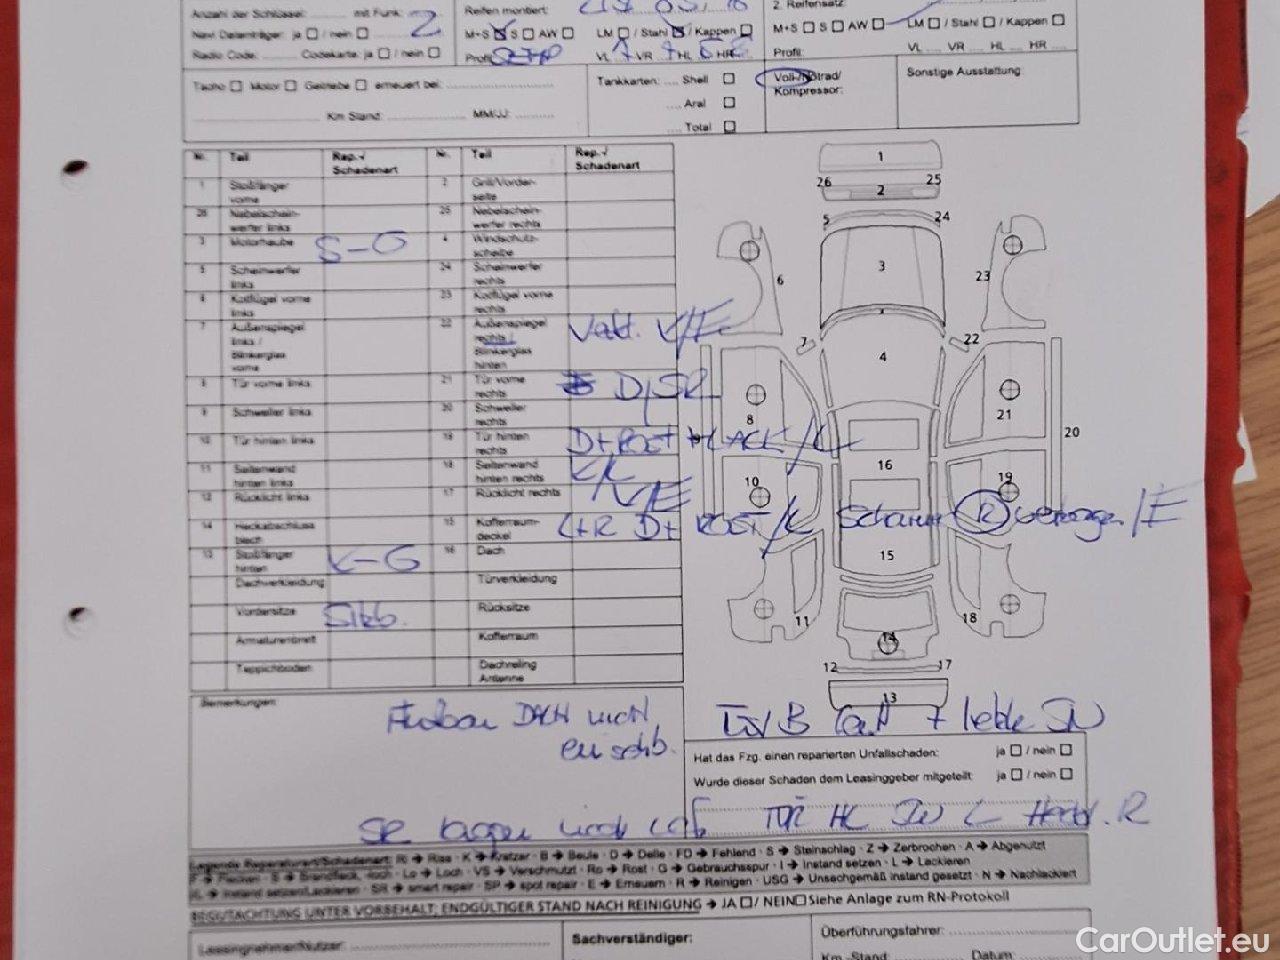 Anzahl der Schlüssel: mit Funk: 2
Navi Datenträger: ja / nein
Radio Code: Codekarte: ja / nein
Reifen montiert:
M+S S AW LM / Stahl / Kappen
Profil: VL VR HL HR
2. Reifensatz
M+S S AW LM / Stahl / Kappen
Profil: VL .... VR .... HL .... HR ....
Tacho Motor Getriebe erneuert bei:
Km Stand: MM/JJ:
Tankkarten: .... Shell
.... Aral
.... Total
Voll-/Notrad/
Kompressor:
Sonstige Ausstattung:
Nr. Teil Rep.√ Schadenart Nr. Teil Rep.√ Schadenart
1 Stoßfänger vorne 2 Grill/Vorderseite
26 Nebelscheinwerfer links 25 Nebelscheinwerfer rechts
3 Motorhaube S-G 4 Windschutzscheibe
5 Scheinwerfer links 24 Scheinwerfer rechts
6 Kotflügel vorne links 23 Kotflügel vorne rechts
7 Außenspiegel links / Blinkerglas vorne 22 Außenspiegel rechts / Blinkerglas hinten K/E
8 Tür vorne links 21 Tür vorne rechts D/SR
9 Schweller links 20 Schweller rechts
10 Tür hinten links 19 Tür hinten rechts D+ROST+LACK/L
11 Seitenwand hinten links 18 Seitenwand hinten rechts
12 Rücklicht links 17 Rücklicht rechts
14 Heckabschlussblech 15 Kofferraumdeckel L+R D+ROST/ R verbogen/E
13 Stoßfänger hinten K-G 16 Dach
Dachverkleidung Türverkleidung
Vordersitze Rücksitze
Armaturenbrett Kofferraum
Teppichboden Dachreling Antenne
1
26 2 25
5 24
6 3 23
7 4 22
8 21
20
16
10 19
15
11 18
14
12 17
13
Bemerkungen:
DACH nicht
Hat das Fzg. einen reparierten Unfallschaden: ja / nein
Wurde dieser Schaden dem Leasinggeber mitgeteilt: ja / nein
TÜR HL
Legende Reparaturart/Schadenart: Ri → Riss · K → Kratzer · B → Beule · D → Delle · FD → Fehlend · S → Steinschlag · Z → Zerbrochen · A → Abgenutzt
F → Flecken · S → Brandfleck, -loch · Lo → Loch · VS → Verschmutzt · Ro → Rost · G → Gebrauchsspur · I → Instand setzen · L → Lackieren
IL → Instand setzen/Lackieren · SR → smart repair · SP → spot repair · E → Erneuern · R → Reinigen · USG → Unsachgemäß instand gesetzt · N → Nachlackiert
BEGUTACHTUNG UNTER VORBEHALT; ENDGÜLTIGER STAND NACH REINIGUNG → JA / NEIN Siehe Anlage zum RN-Protokoll
Leasingnehmer/Nutzer:
Sachverständiger:
Überführungsfahrer:
Km -Stand: Datum:
CarOutlet.eu